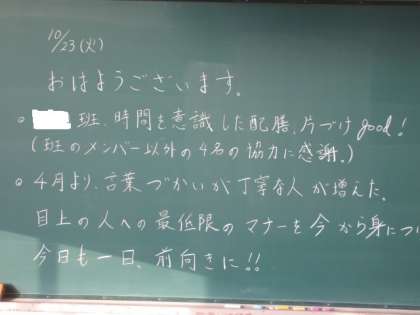 10/23(火)
おはようございます。
。 班、時間を意識した配膳、片づけgood!
(班のメンバー以外の4名の協力に感謝。)
。4月より、言葉づかいが丁寧な人が増えた。
目上の人への最低限のマナーを今から身につ
今日も一日、前向きに!!